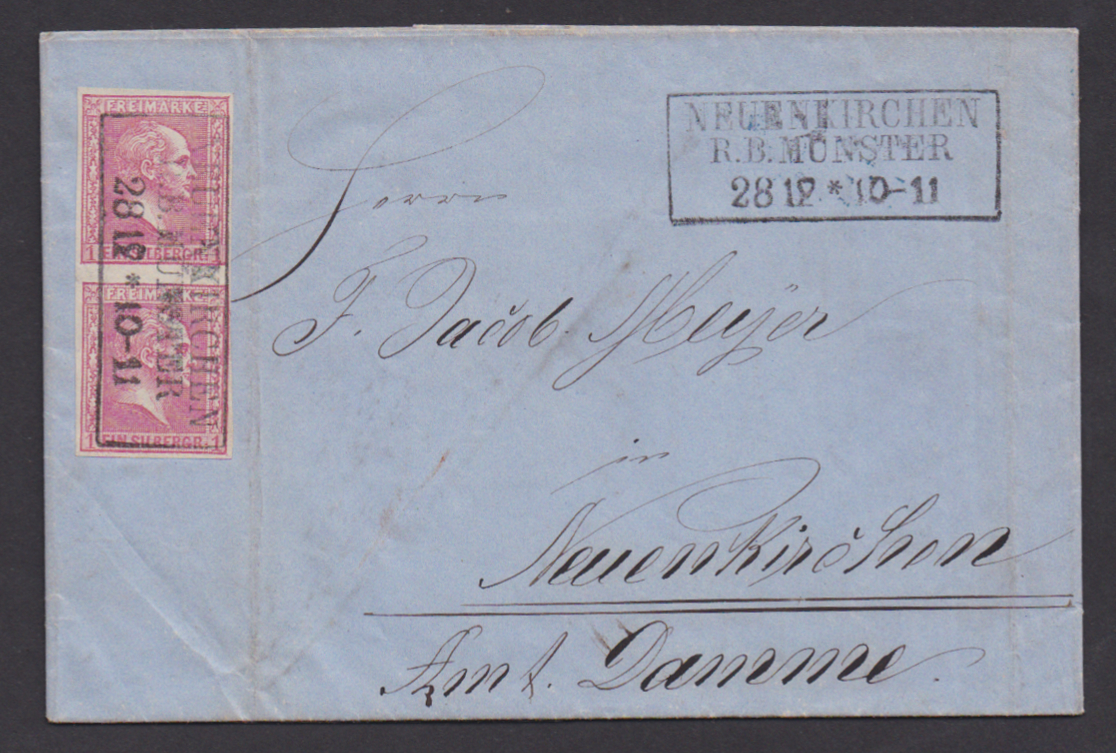 FREIMARKE
1 EIN SILBERGR. 1
FREIMARKE
1 EIN SILBERGR. 1
NEUENKIRCHEN
R.B. MÜNSTER
28 12 * 10-11
NEUENKIRCHEN
R.B. MÜNSTER
28 12 * 10-11
Herrn
F. Jacob Meÿer
in
Neuenkirchen
Amt. Damme.